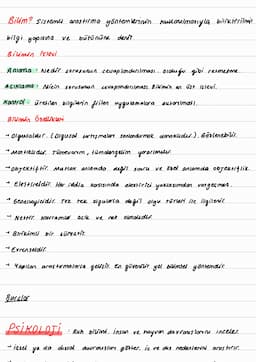 Bilim? Sistemli araştırma yöntemlerinin kullanılmasıyla biriktirilmiş
bilgi yapısına ve bütününe denir.
Bilimin İşlevi
Anlama: Nedir sorusunun cevaplandırılması. olduğu gibi resmetme.
Açıklama: Niçin sorusunun cevaplandırılması. Bilimin en üst işlevi.
Kontrol: Üretilen bilgilerin fiilen uygulamalara aktarılması.
Bilimin Özellikleri
→ Olgusaldır. (Olgusal tartışmaları sonlandırmak amaçlıdır). Gözlenebilir.
→ Mantıksaldır. Tümevarım, tümdengelim yararlanılır.
→ Objektiftir. Mutlak anlamda değil sınırlı ve özel anlamda objektiflik.
→ Eleştireldir. Her iddia karşısında eleştirici yaklaşımdan vazgeçmez.
→ Genelleyicidir. Tek tek olgularla değil olgu türleri ile ilgilenir.
→ Nettir. Kavramlar açık ve net olmalıdır.
→ Birikimli bir süreçtir.
→ Evrenseldir.
→ Yapılan araştırmalarla gelişir. En güvenilir yol bilimsel yöntemdir.
PSİKOLOJİ: Ruh bilimi. İnsan ve hayvan davranışlarını inceler.
→ İçsel ya da dışsal davranışları gözler, iç ve dış nedenlerini araştırır.